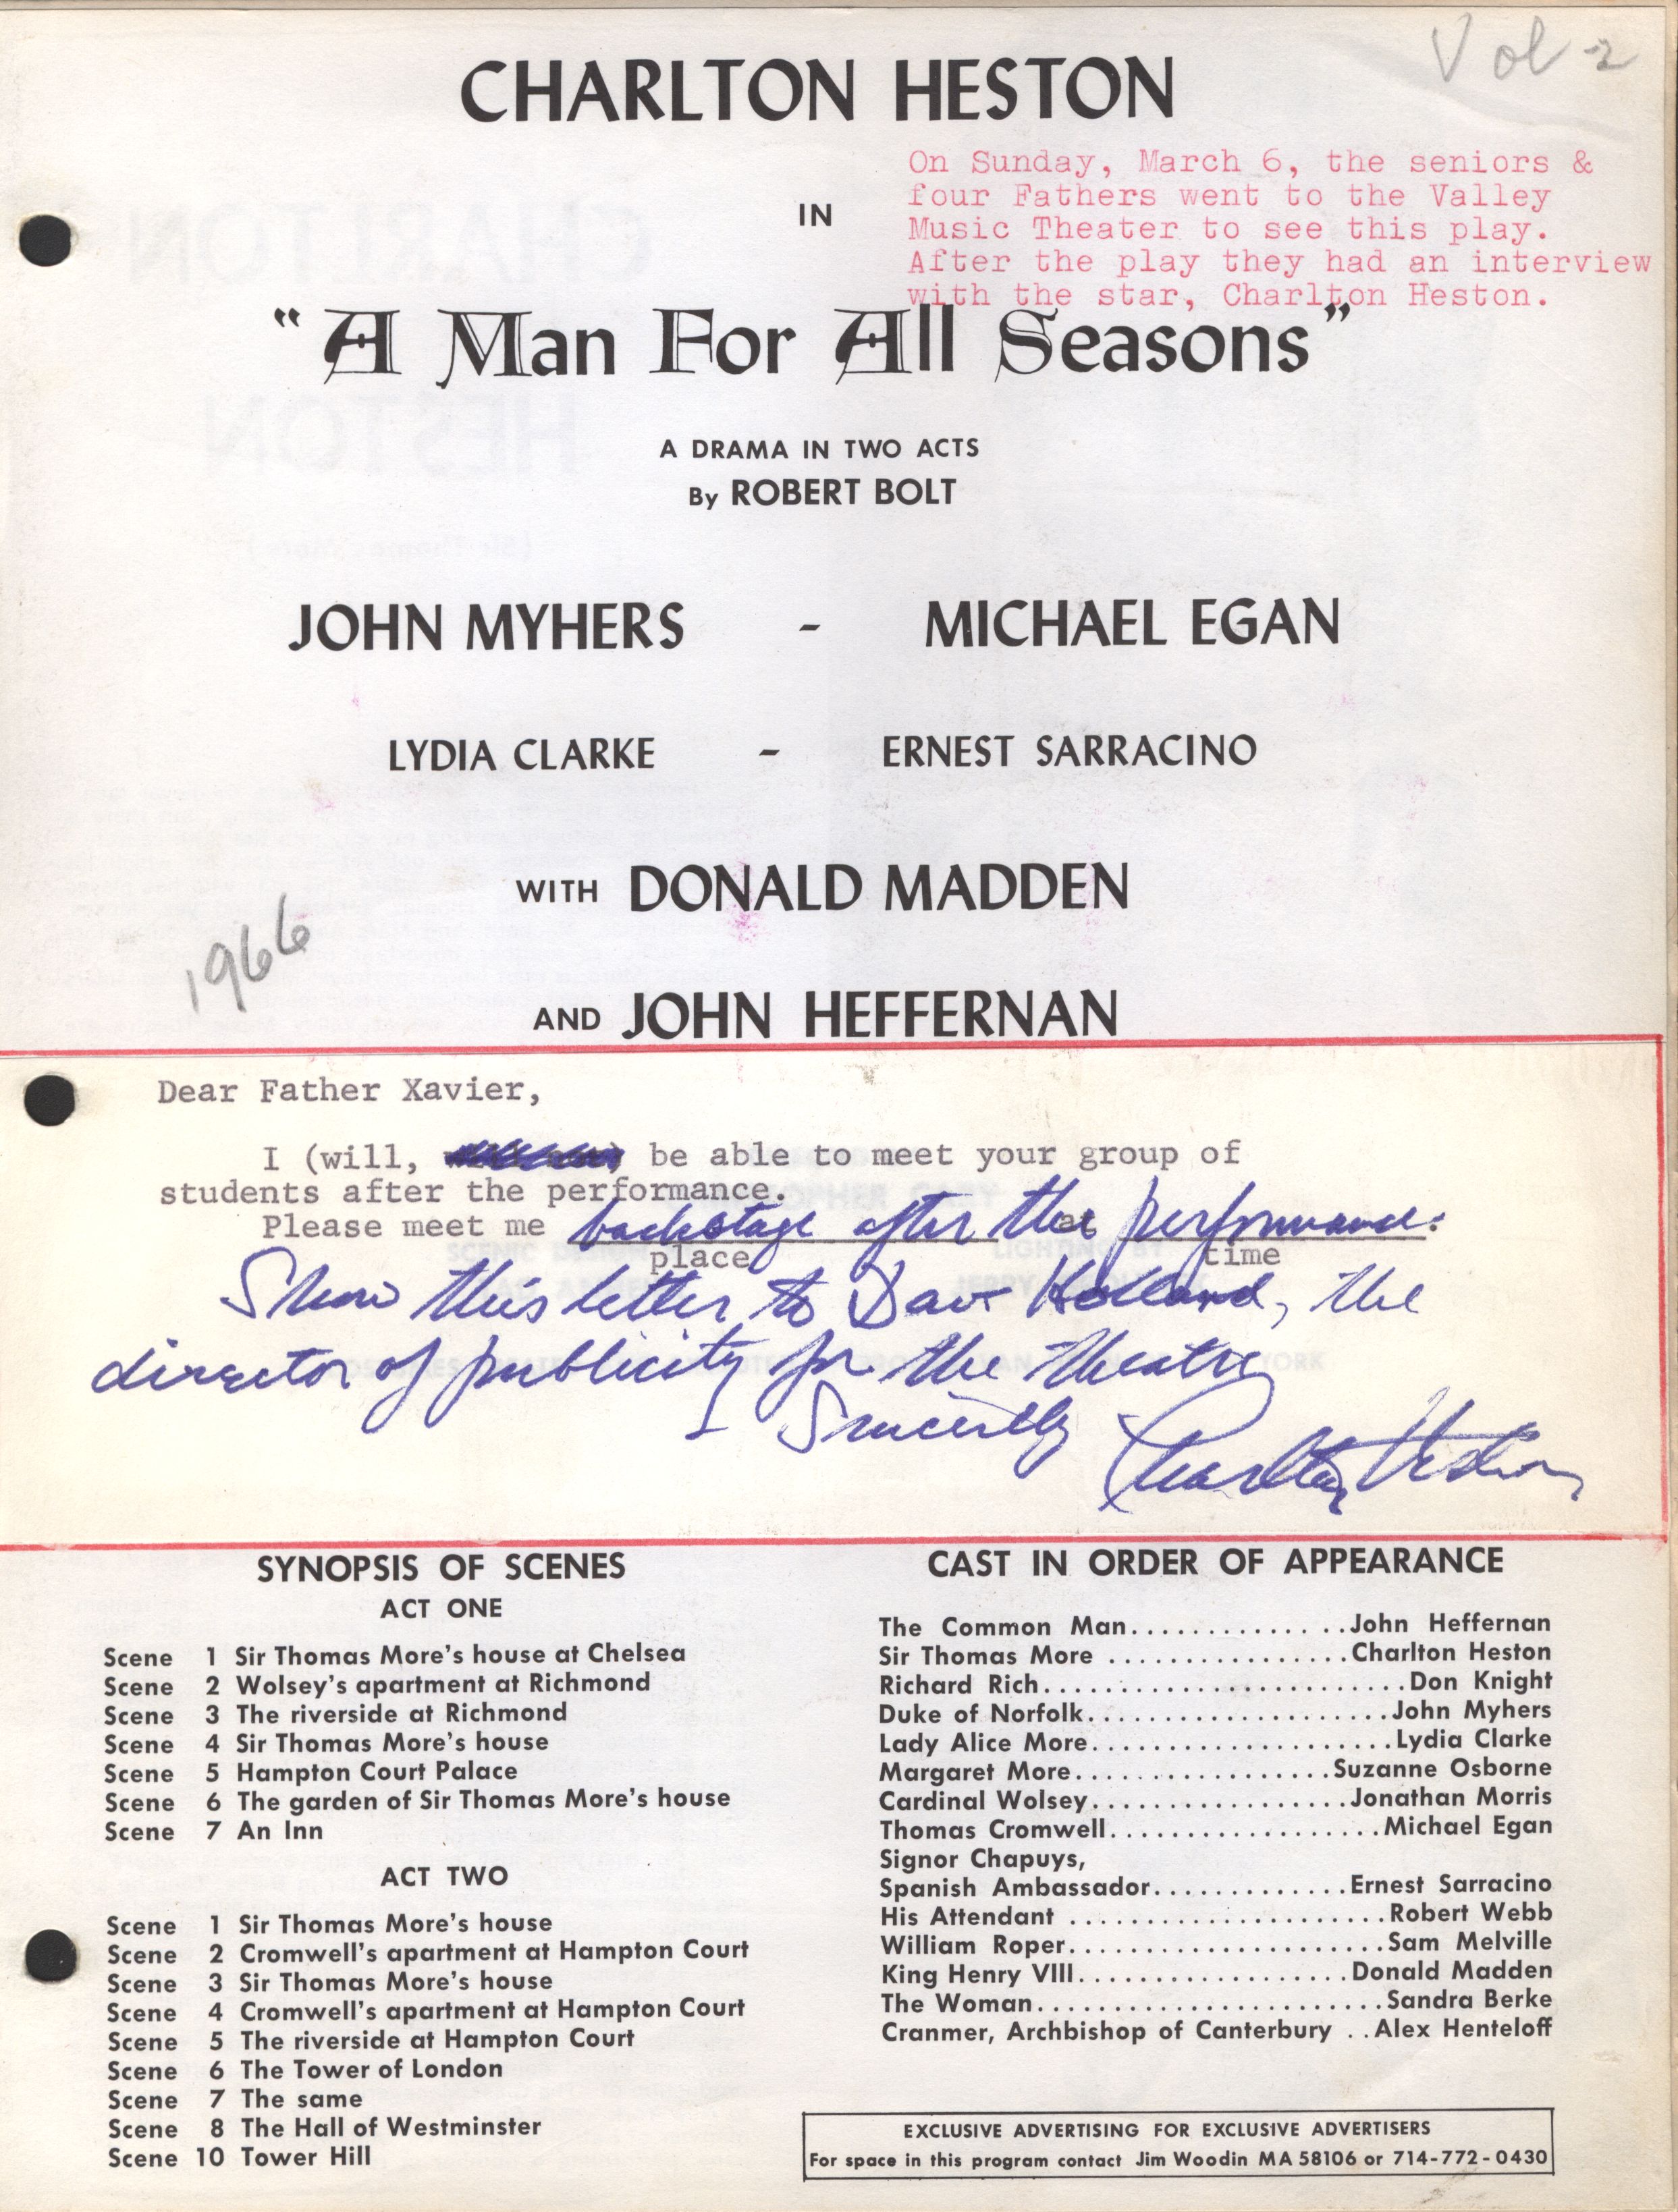 Vol 2
CHARLTON HESTON
On Sunday, March 6, the seniors &
four Fathers went to the Valley
Music Theater to see this play.
After the play they had an interview
with the star, Charlton Heston.
IN
"A Man For All Seasons"
A DRAMA IN TWO ACTS
By ROBERT BOLT
JOHN MYHERS - MICHAEL EGAN
LYDIA CLARKE - ERNEST SARRACINO
WITH DONALD MADDEN
1966
AND JOHN HEFFERNAN
Dear Father Xavier,
I (will, be able to meet your group of
students after the performance.
Please meet me backstage after the at performance.
place time
Show this letter to Dave Holland, the
director of publicity for the theatre
Sincerely
Charlton Heston
SYNOPSIS OF SCENES
ACT ONE
Scene 1 Sir Thomas More's house at Chelsea
Scene 2 Wolsey's apartment at Richmond
Scene 3 The riverside at Richmond
Scene 4 Sir Thomas More's house
Scene 5 Hampton Court Palace
Scene 6 The garden of Sir Thomas More's house
Scene 7 An Inn
ACT TWO
Scene 1 Sir Thomas More's house
Scene 2 Cromwell's apartment at Hampton Court
Scene 3 Sir Thomas More's house
Scene 4 Cromwell's apartment at Hampton Court
Scene 5 The riverside at Hampton Court
Scene 6 The Tower of London
Scene 7 The same
Scene 8 The Hall of Westminster
Scene 10 Tower Hill
CAST IN ORDER OF APPEARANCE
The Common Man..............John Heffernan
Sir Thomas More ................Charlton Heston
Richard Rich.........................Don Knight
Duke of Norfolk.....................John Myhers
Lady Alice More.....................Lydia Clarke
Margaret More..................Suzanne Osborne
Cardinal Wolsey..................Jonathan Morris
Thomas Cromwell...................Michael Egan
Signor Chapuys,
Spanish Ambassador.............Ernest Sarracino
His Attendant ......................Robert Webb
William Roper......................Sam Melville
King Henry VIII...................Donald Madden
The Woman........................Sandra Berke
Cranmer, Archbishop of Canterbury ..Alex Henteloff
EXCLUSIVE ADVERTISING FOR EXCLUSIVE ADVERTISERS
For space in this program contact Jim Woodin MA 58106 or 714-772-0430